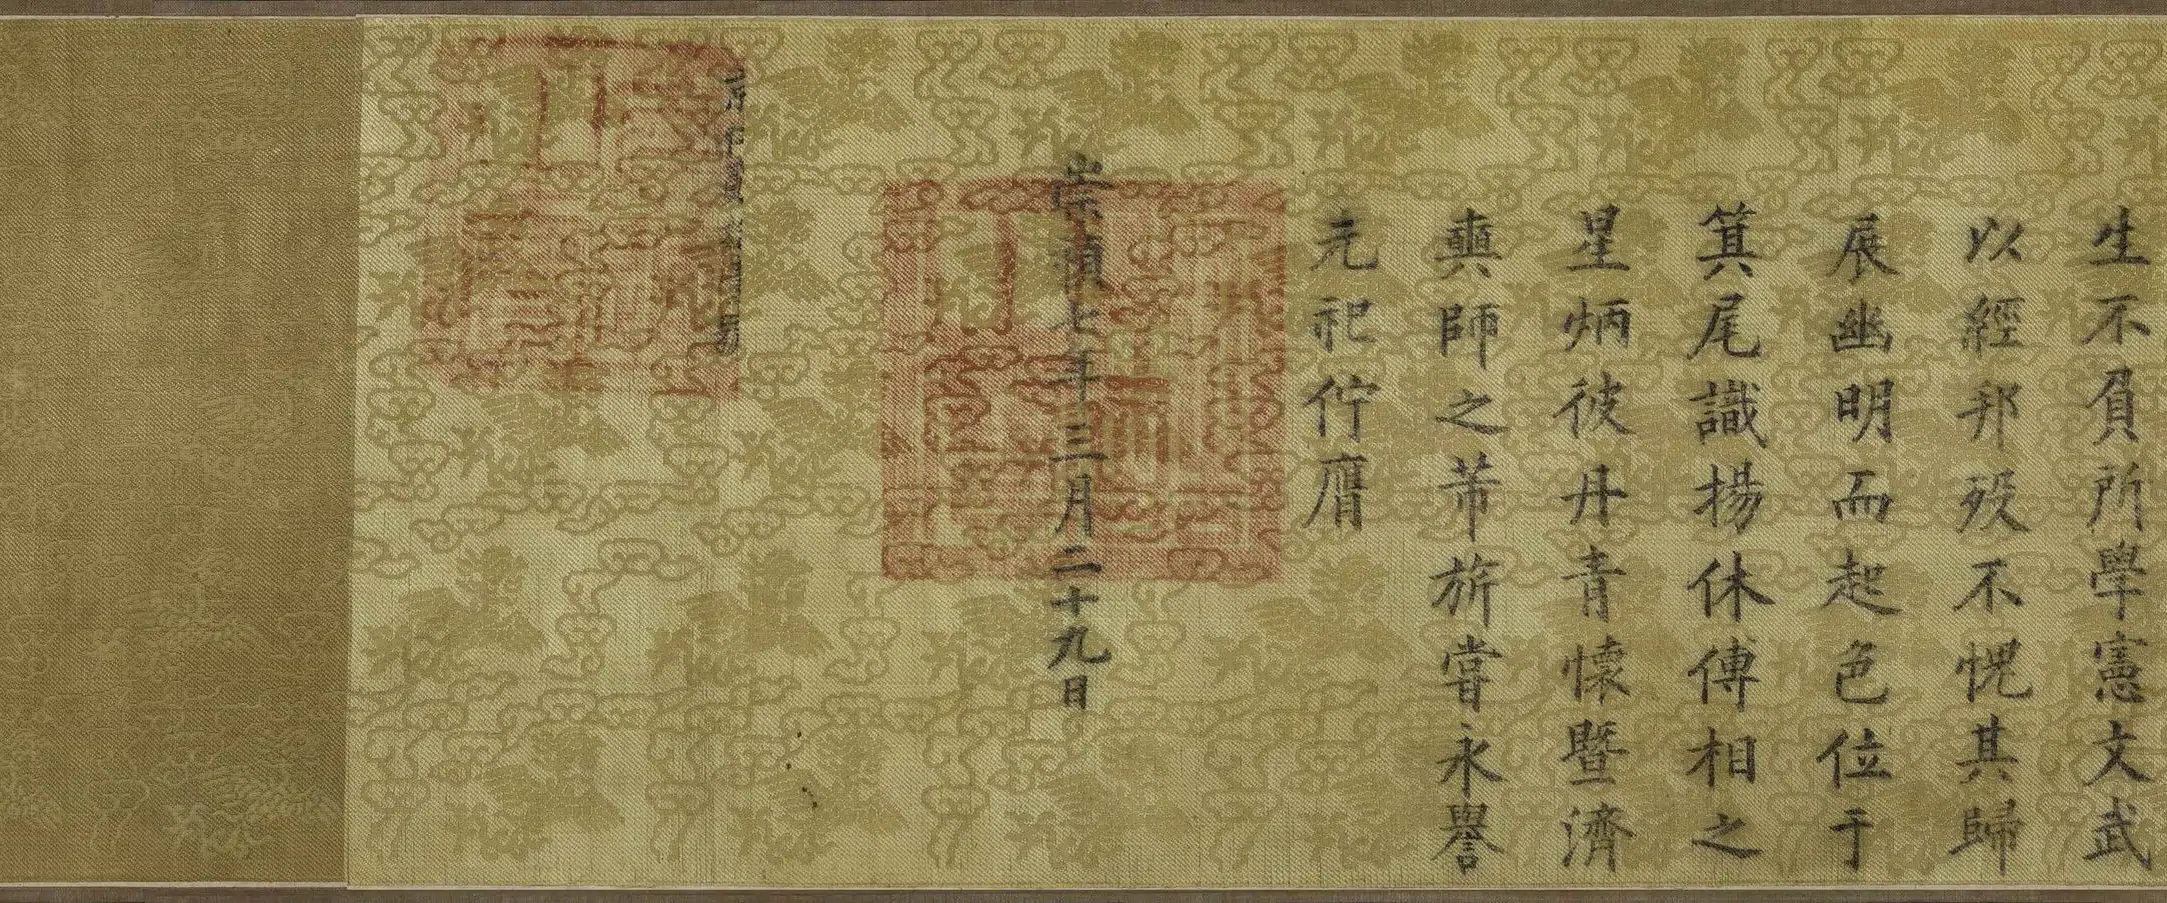 生不負所學憲文武
以經邦歿不愧其歸
展幽明而起色位于
箕尾識揚休傅相之
星炳彼丹青懷暨濟
奭師之芾旂嘗永譽
元祀佇膺
崇禎七年三月二十九日